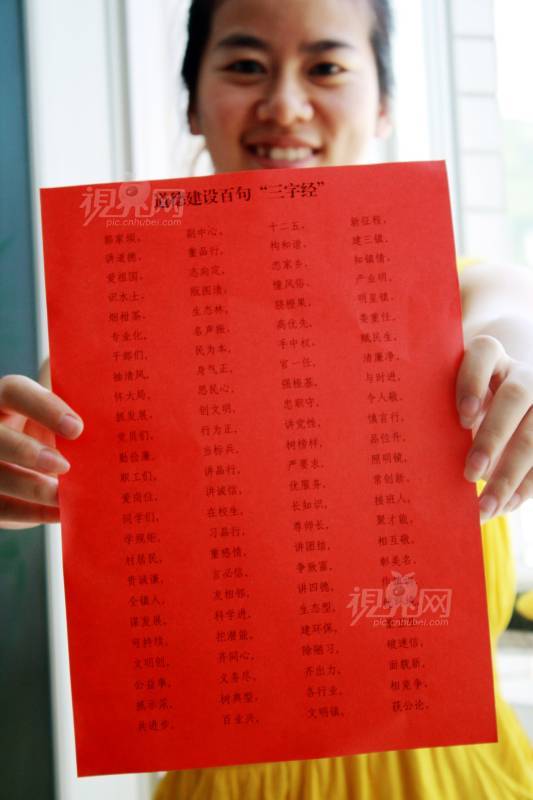 道德建设百句“三字经”
郭家坝， 副中心， 十二五， 新征程，
讲道德， 重品行， 构和谐， 建三镇，
爱祖国， 志向定， 恋家乡， 知镇情，
识水土， 懂风俗， 产业明，
烟柑茶， 生态林， 脐橙果， 明星镇，
专业化， 名声振， 高优先， 委重任，
干部们， 民为本， 手中权， 赋民生，
袖清风， 身气正， 官一任， 清廉净，
怀大局， 恩民心， 强根基， 与时进，
抓发展， 创文明， 忠职守， 令人敬，
党员们， 行为正， 讲党性， 慎言行，
勤俭廉， 当标兵， 树榜样， 品位升，
职工们， 讲品行， 严要求， 照明镜，
爱岗位， 讲诚信， 优服务， 常创新，
同学们， 在校生， 长知识， 接班人，
学规矩， 习品行， 尊师长， 聚才能，
村居民， 重感情， 讲团结， 相互敬，
贵诚谦， 言必信， 争致富， 彰美名，
全镇人， 友相邻， 讲四德，
谋发展， 科学进， 生态型，
可持续， 把潜能， 建环保， 破迷信，
文明创， 齐同心， 除陋习， 面貌新，
公益事， 义务尽， 齐出力， 相竞争，
抓示范， 树典型， 各行业， 获公论，
共进步， 百业兴， 文明镇，
視界网
pic.cnhubei.com
視界网
pic.cnhubei.com